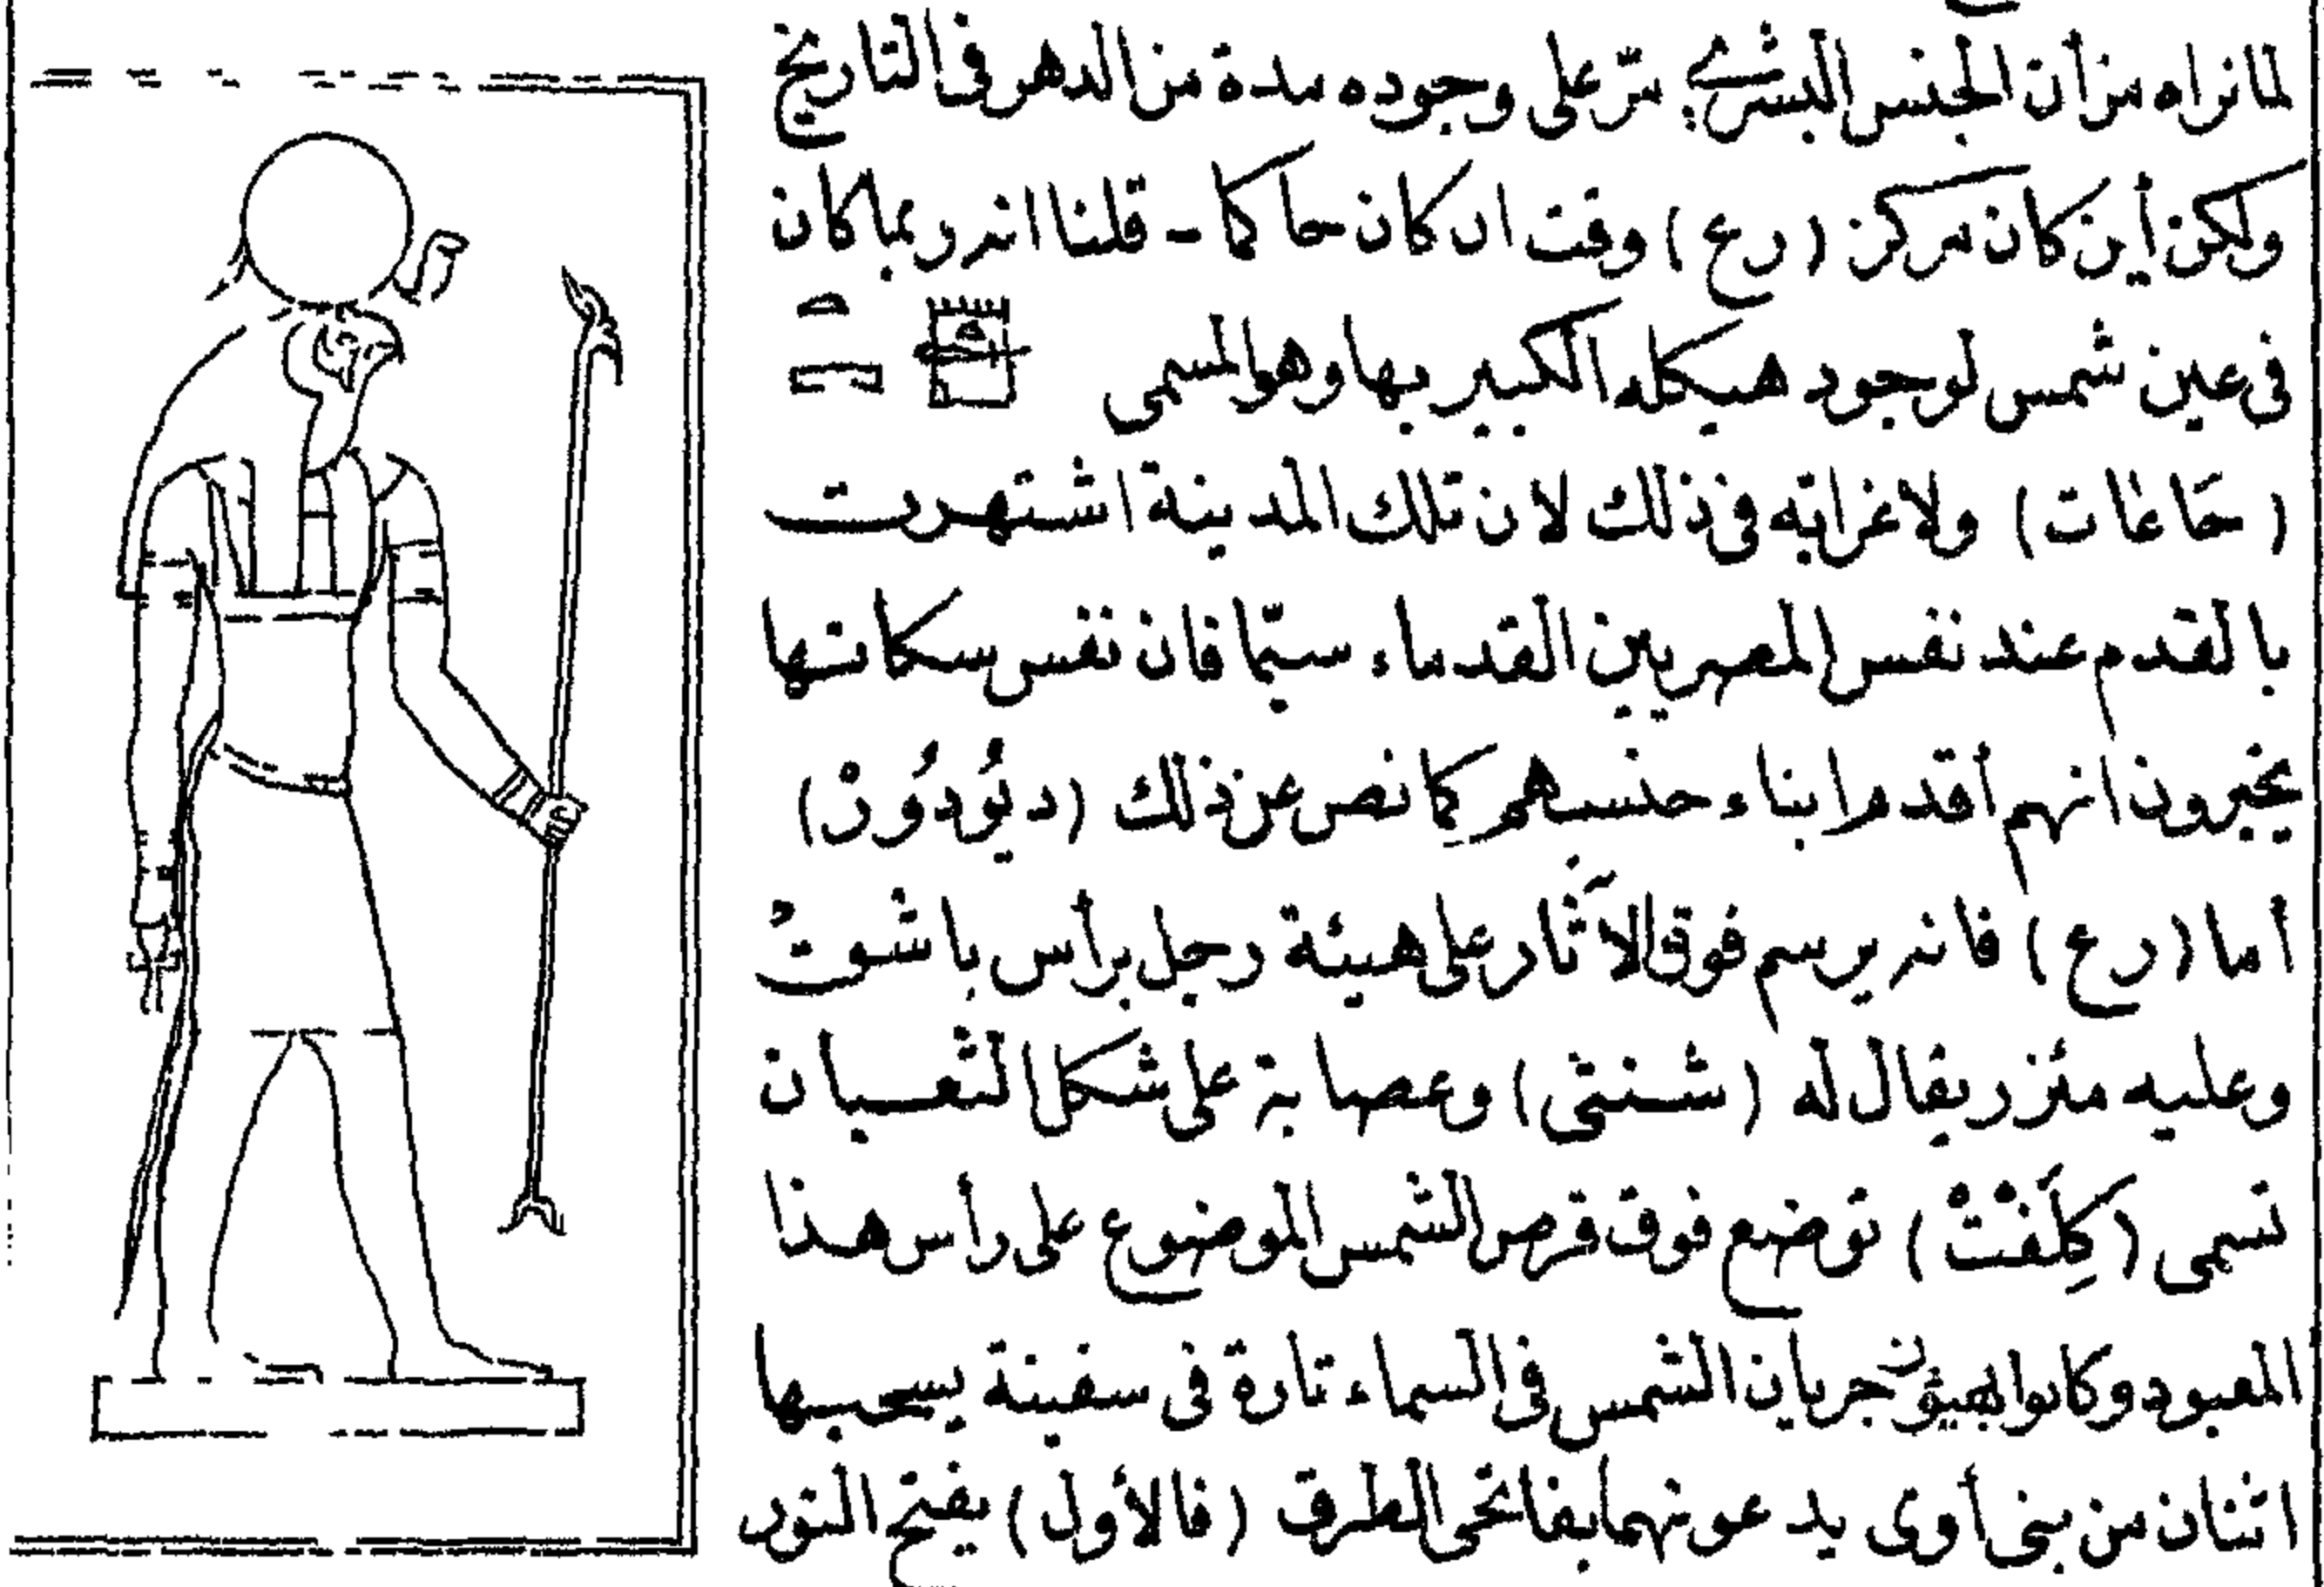 لما نراه من أن الجنس البشرى مرّ على وجوده مدة من الدهر فى التاريخ
ولكن أين كان مركز (رع) وقت ان كان حاكما - قلنا انه ربما كان
فى عين شمس لوجود هيكله الكبير بها وهو المسمى
(حَاعَات) ولا غرابه فى ذلك لان تلك المدينة اشتهرت
بالقدم عند نفس المصريين القدماء سيّما فان نفس سكانها
يخبرون انهم أقدم ابناء جنسهم كما نص عن ذلك (ديُودُورْ)
أما (رع) فانه يرسم فوق الآثار على هيئة رجل برأس باشوتُ
وعليه مئزر يقال له (شنتى) وعصابة على شكل الثعبان
تسمى (كِلَفْتْ) توضع فوق قرص الشمس الموضوع على رأس هذا
المعبود وكانوا يهيؤن جريان الشمس فى السماء تارة فى سفينة يسحبها
اثنان من بنى أوى يدعونهما بفاتحى الطرق (فالأول) يفتح النور